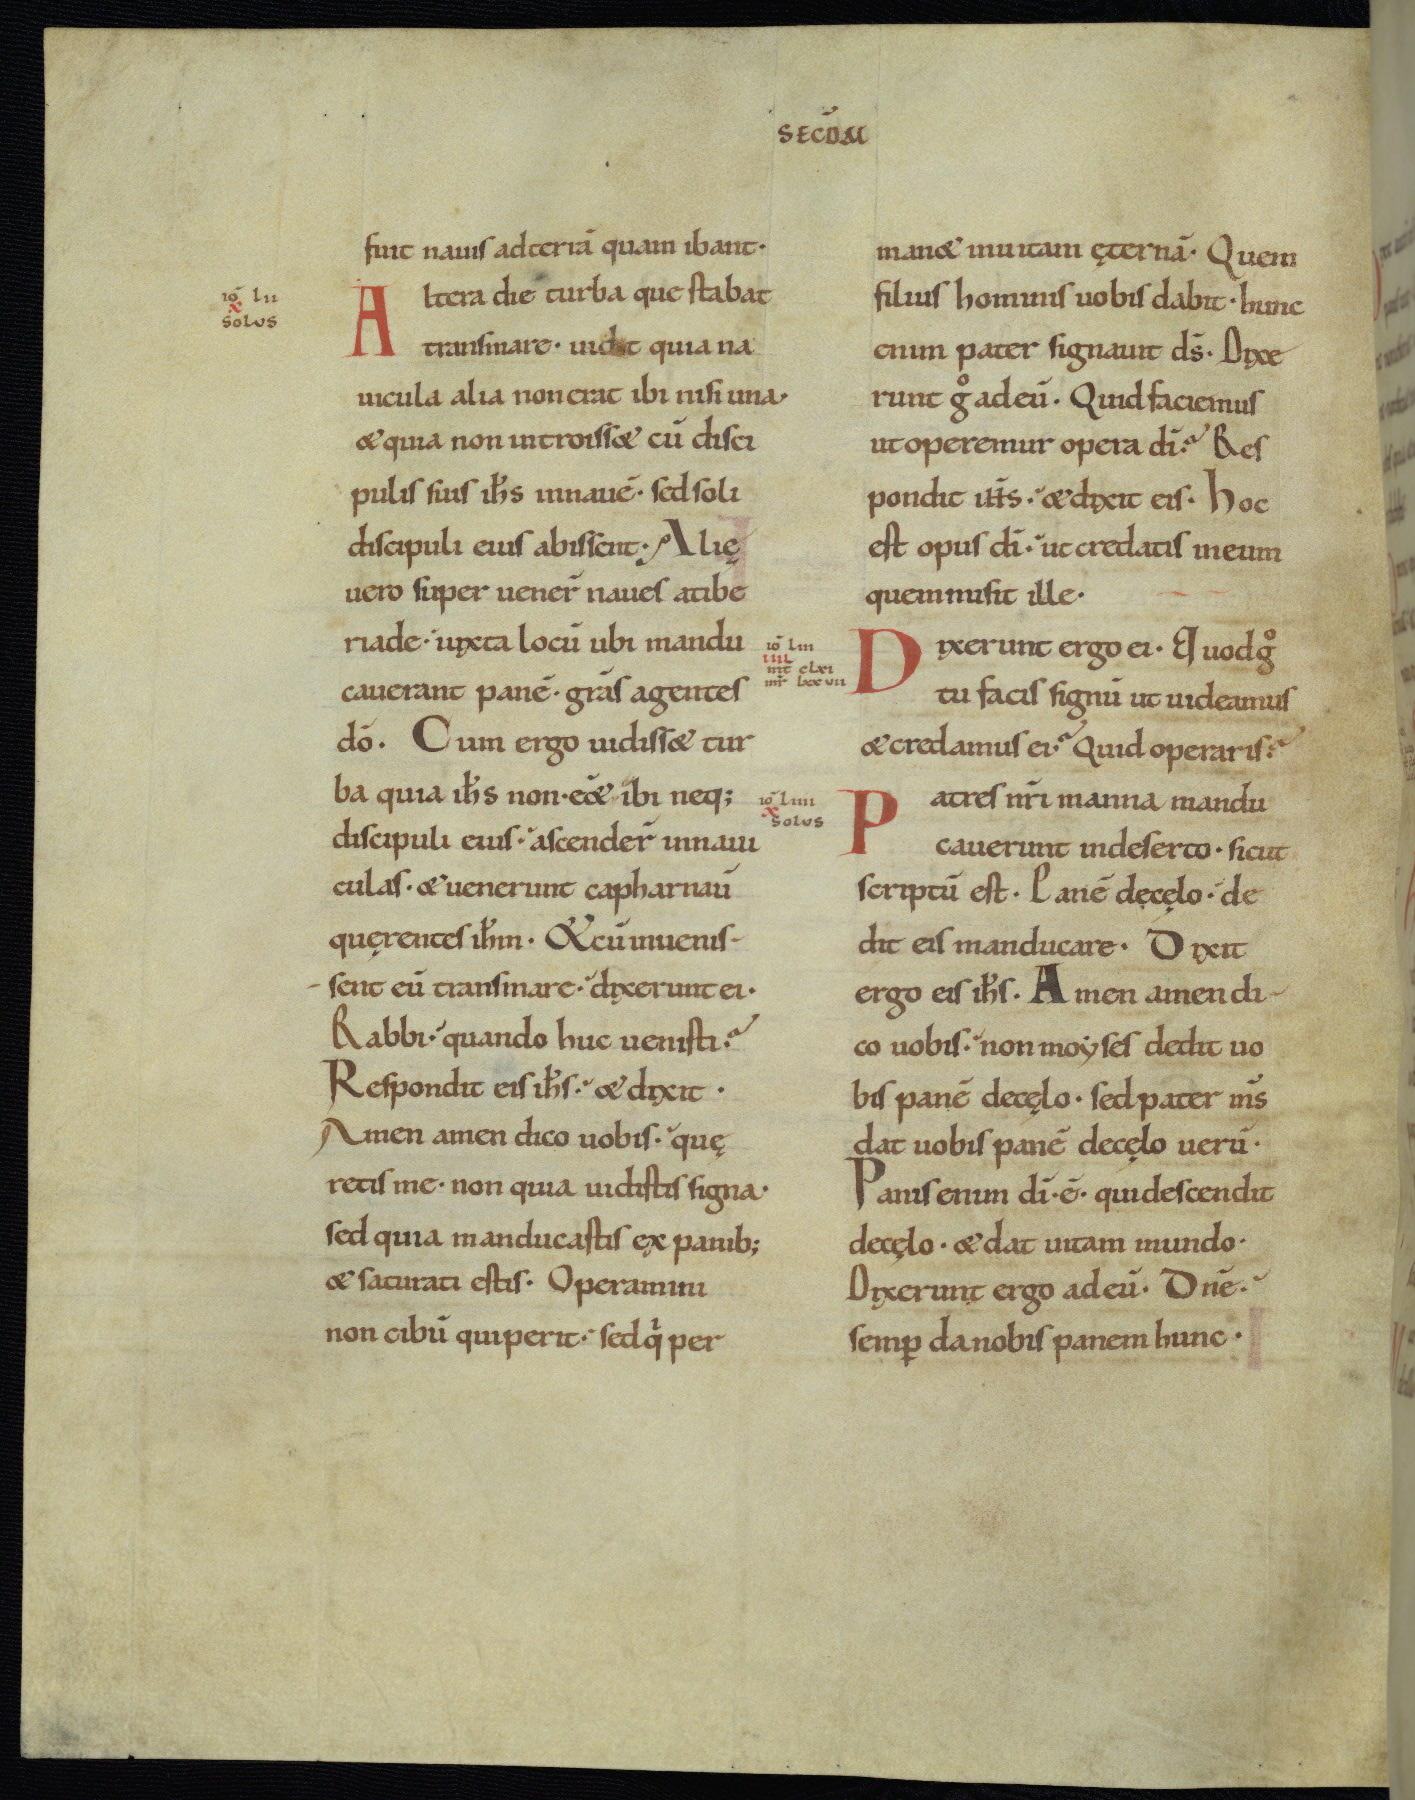 SECŪM
fuit nauis ad terrā quam ibant·
iō lii
x
solus
Altera die turba que stabat
trans mare· uidit quia na
uicula alia non erat ibi nisi una·
& quia non introiss& cū disci
pulis suis ih̄s in nauē· sed soli
discipuli eius abissent· Alię
uero super uener̄ naues a tibe
riade· iuxta locū ubi mandu
cauerant panē· grās agentes
dō. Cum ergo uidiss& tur
ba quia ih̄s non·e&̄ ibi neq;
discipuli eius· ascender̄ in naui
culas· & uenerunt capharnaū
quęrentes ih̄m· & cū inuenis-
-sent eū trans mare· dixerunt ei·
Rabbi· quando huc uenisti?
Respondit eis ih̄s· & dixit·
Amen amen dico uobis· quę
retis me· non quia uidistis signa·
sed quia manducastis ex panib;
& saturati estis· Operamini
non cibū qui perit· sed qⁱ per
man& in uitam ęternā· Quem
filius hominis uobis dabit· hunc
enim pater signauit ds̄· Dixe
runt gͦ ad eū· Quid faciemus
ut operemur opera dī? Res
pondit ih̄s· & dixit eis· Hoc
est opus dī· ut credatis in eum
quem misit ille·
iō liii
iiii
mt clxi
mr lxxvii
Dixerunt ergo ei· Quod gͦ
tu facis signū ut uideamus
& credamus ei? Quid operaris?
iō liiii
x
solus
Patres nr̄i manna mandu
cauerunt in deserto· sicut
scriptū est· Panē de cęlo· de
dit eis manducare· Dixit
ergo eis ih̄s· Amen amen di-
co uobis· non moẏses dedit uo
bis panē de cęlo· sed pater ms̄
dat uobis panē de cęlo uerū·
Panis enim dī·ē· qui descendit
de cęlo· & dat uitam mundo·
Dixerunt ergo ad eū· Dnē·
semꝑ da nobis panem hunc·